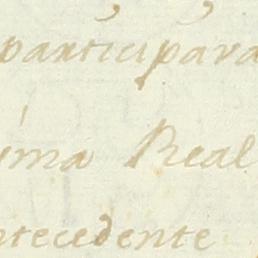 participara
ima Real
ntecedente